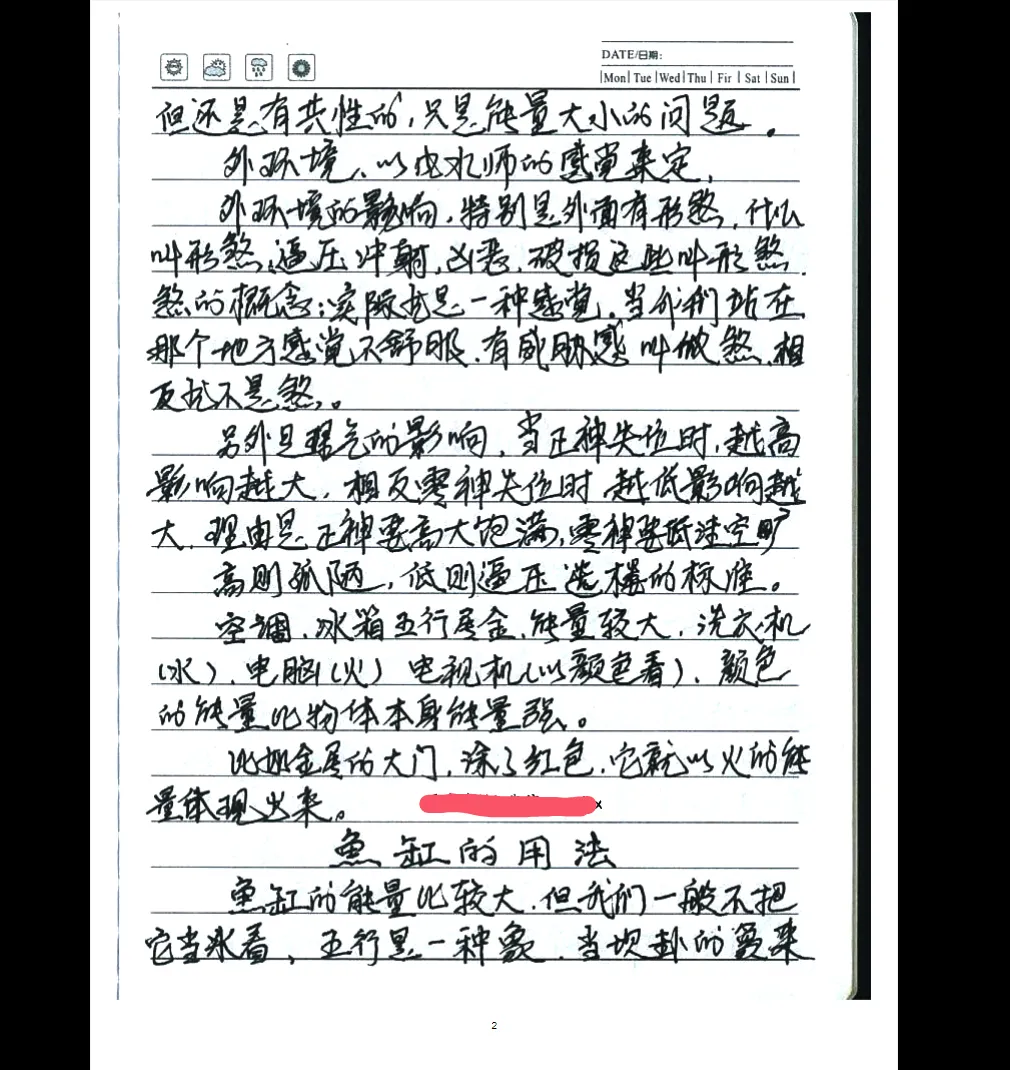 DATE/日期:
Mon Tue Wed Thu Fir Sat Sun
但还是有共性的,只是能量大小的问题。
外环境、以风水师的感觉来定,
外环境的影响,特别是外面有形煞,什么
叫形煞:逼压冲射,凶恶,破损这些叫形煞
煞的概念:实际也是一种感觉,当我们站在
那个地方感觉不舒服,有威胁感叫做煞,相
反就不是煞。
另外旦理气的影响,当正神失位时,越高
影响越大,相反零神失位时越低影响越
大,理由是正神要高大饱满,零神要低洼空旷
高则孤陋,低则逼压选楼的标准。
空调、冰箱五行属金,能量较大,洗衣机
(水)、电脑(火)电视机(以颜色看)、颜色
的能量比物体本身能量强。
比如金属的大门,涂了红色,它就以火的能
量体现出来。
鱼缸的用法
鱼缸的能量比较大,但我们一般不把
它当水看,五行是一种象,当坎卦的象来
2